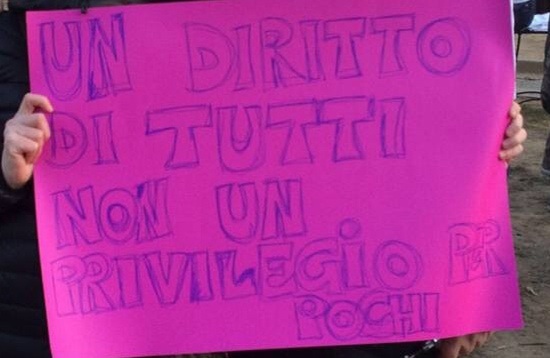 UN DIRITTO
DI TUTTI
NON UN
PRIVILEGIO PER
POCHI